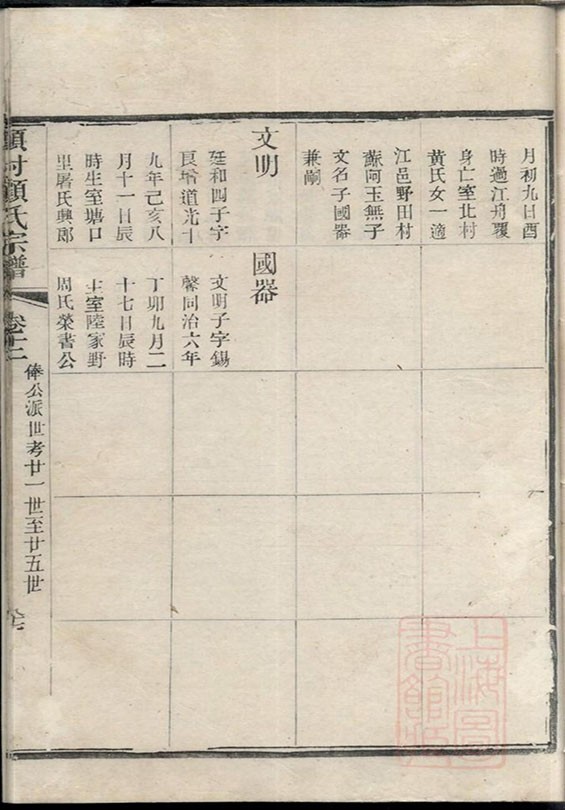 月初九日酉
時過江舟覆
身亡室北村
黃氏女一適
江邑野田村
蘇阿玉無子
文名子國器
兼嗣
文明
廷和四子字
良增道光十
九年己亥八
月十一日辰
時生室塘口
里屠氏興郎
國器
文明子字錫
馨同治六年
丁卯九月二
十七日辰時
生室陸家野
周氏榮書公
顧氏宗譜
卷十二
俸公派世考廿一世至廿五世
上海圖書館藏